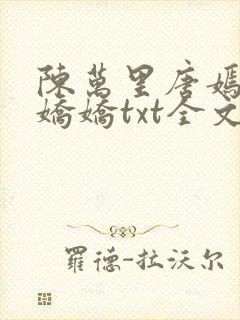 陳萬里唐嫣
嬌嬌txt全文
羅德-拉沃尔